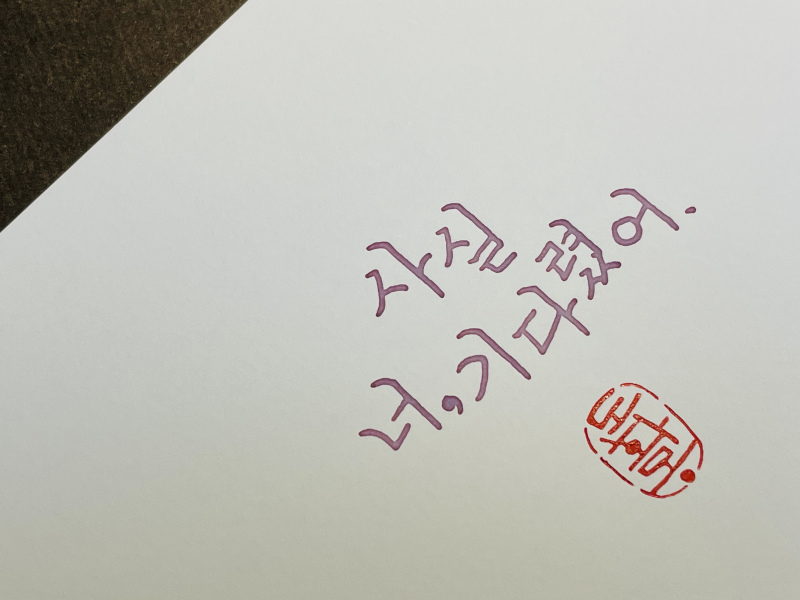 사실
너, 기다렸어.